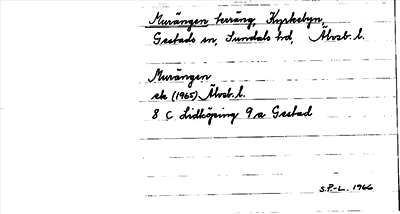 Murängen terräng, Kyrkebyn,
Gestads sn, Sundals hd, Älvsb. l.
Murängen
ek (1965) Älvsb. l.
8 C Lidköping 9 a Gestad
S.P-L. 1966